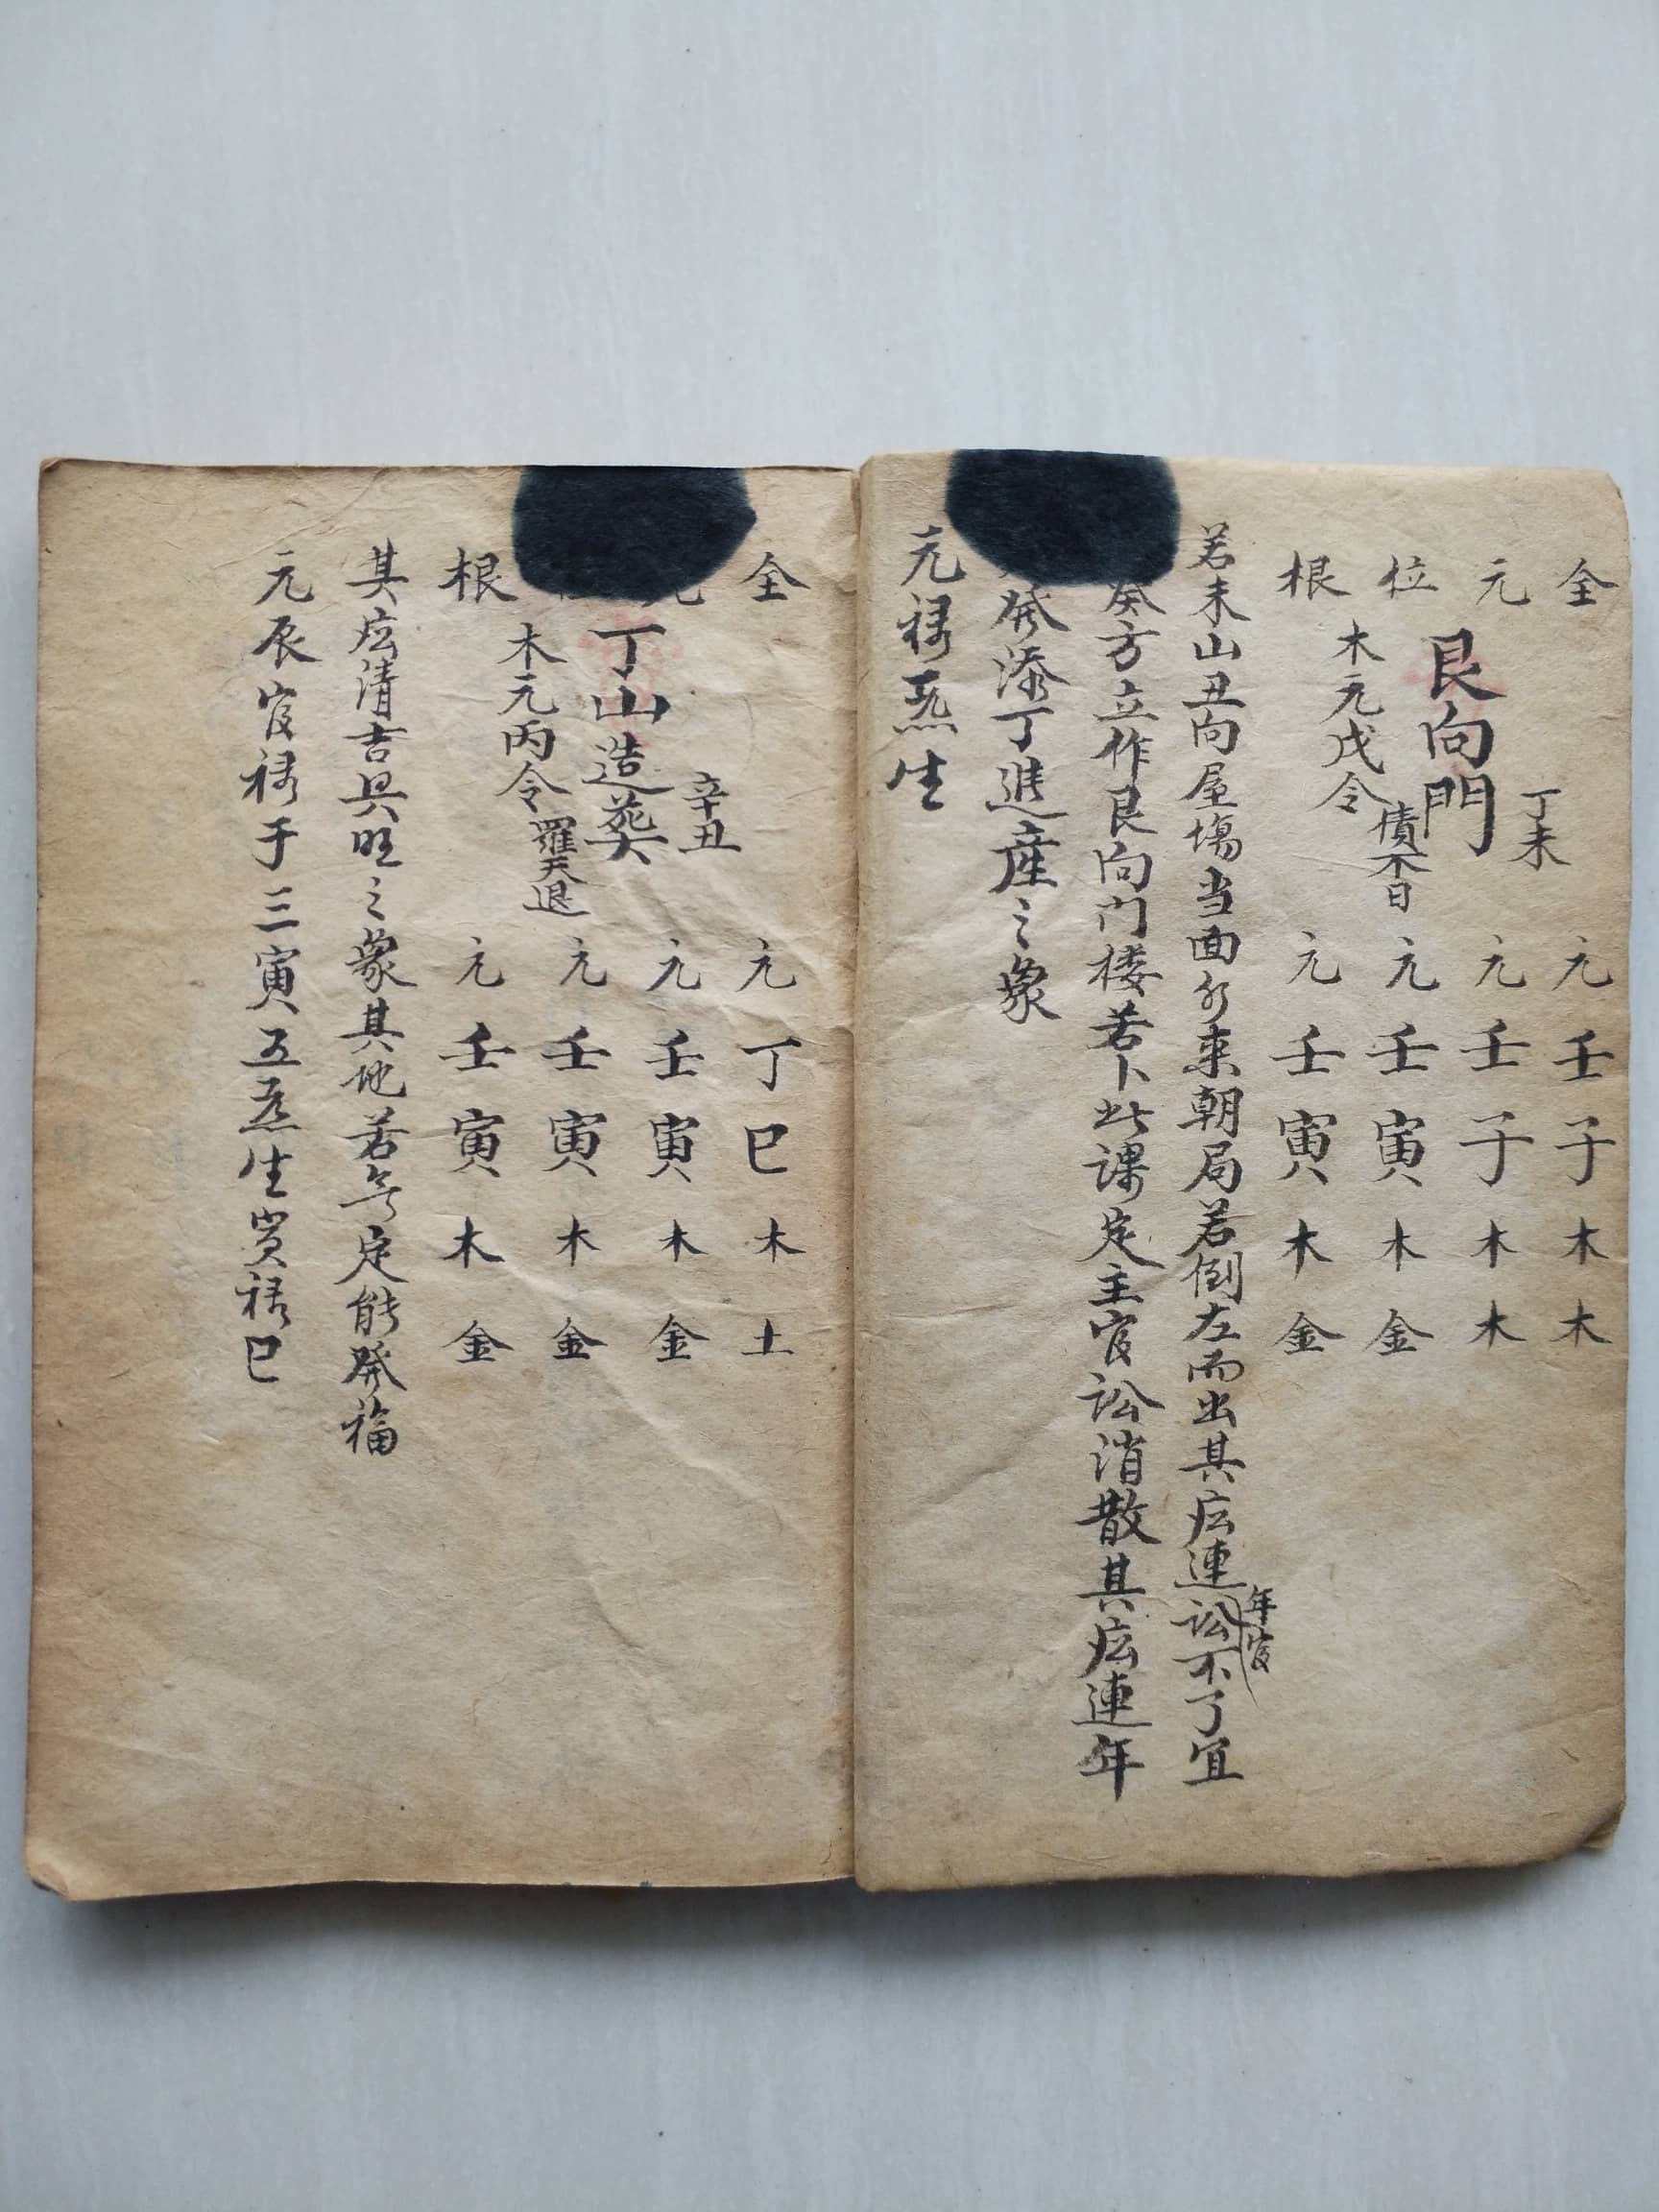 全 元壬子木木
丁未
元 元壬子木木
艮向門
位 元壬寅木金
債不日
木元戊令
根 元壬寅木金
年官
若未山丑向屋場当面水来朝局若倒左而出其広連訟不了宜
癸方立作艮向门楼若卜此课定主官訟消散其広連年
発添丁進産之象
元禄炁生
全 元丁巳木土
辛丑
元 元壬寅木金
丁山造葬
元壬寅木金
羅天退
木元丙令
根 元壬寅木金
其広清吉興旺之象其地若兮定能発福
元辰官禄于三寅五炁生寅禄巳